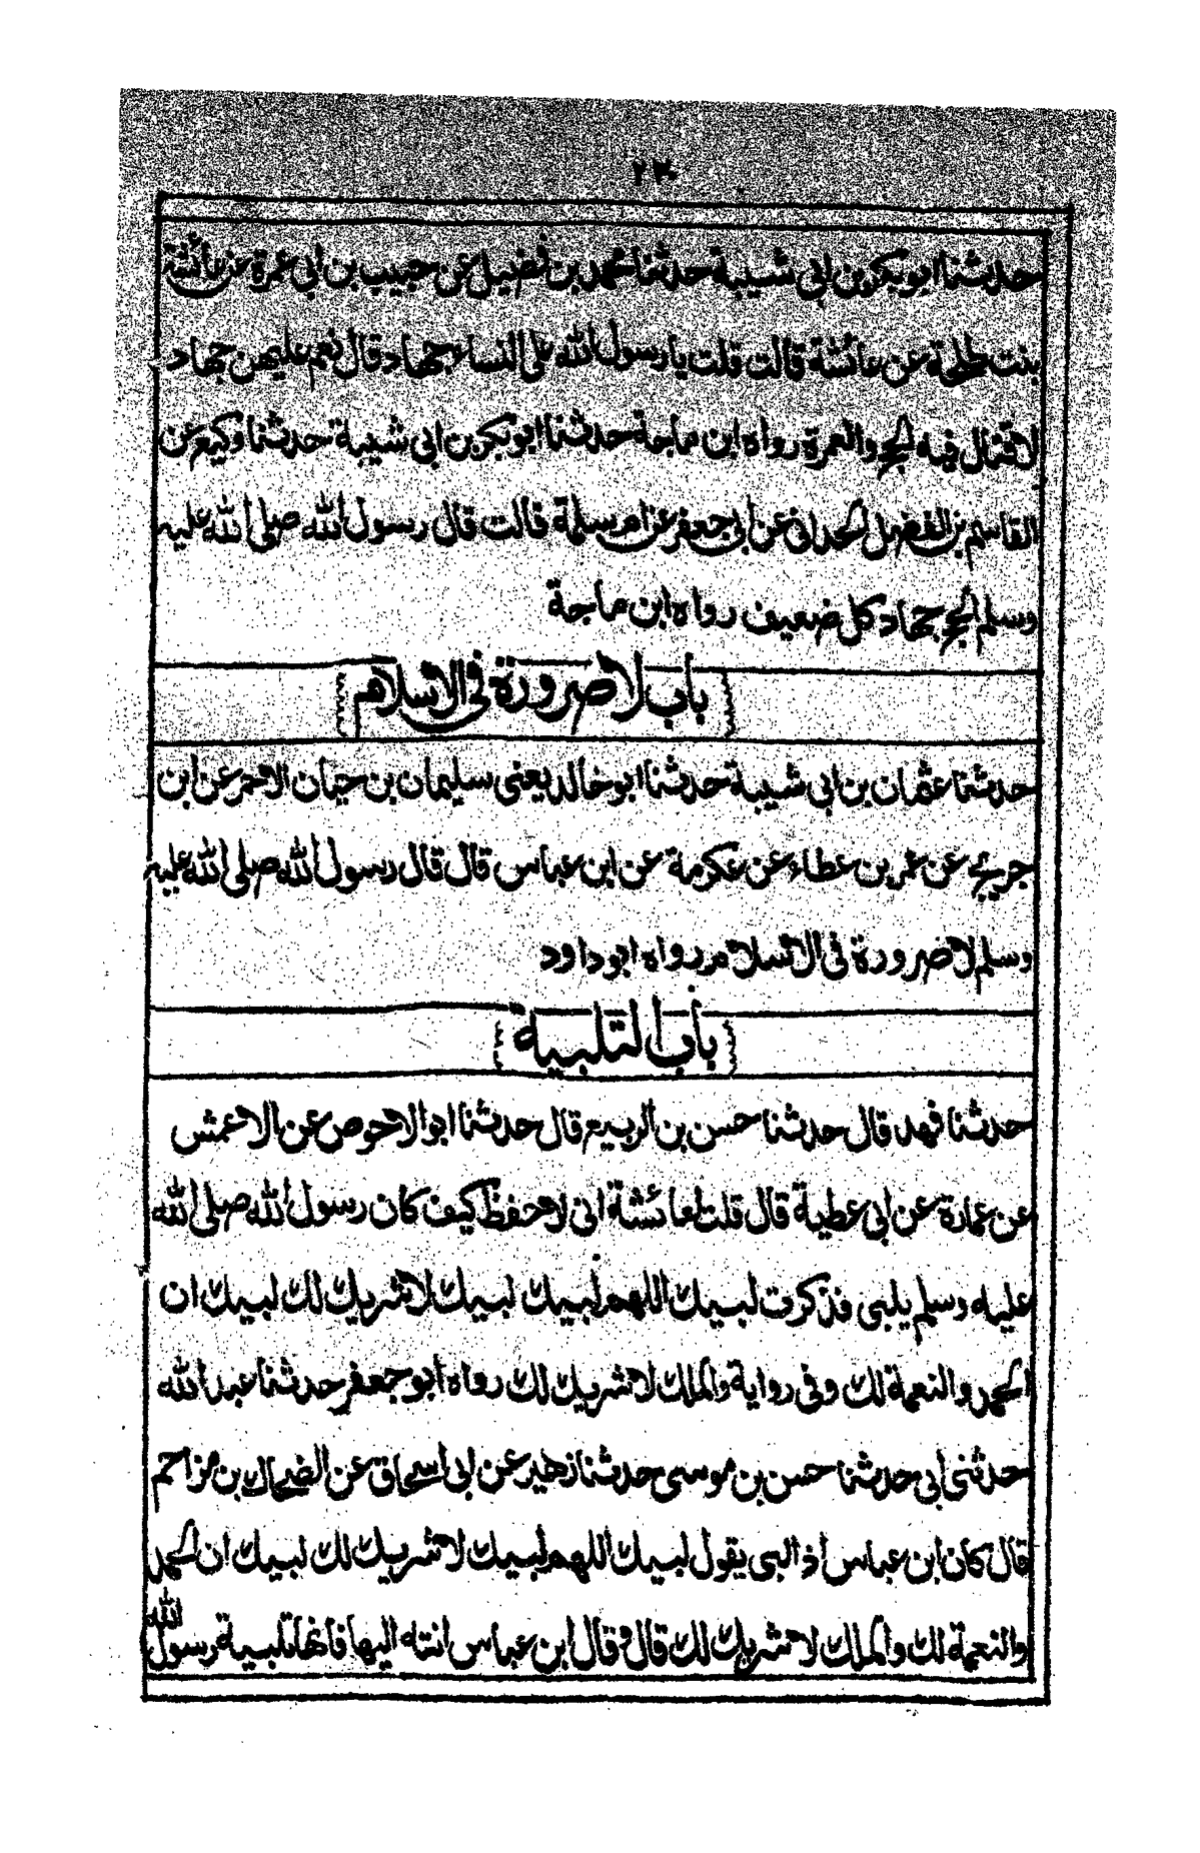 ٢٣٠
حدثنا ابو بكر بن ابي شيبة حدثنا محمد بن فضيل عن حبيب بن ابي عمرة عن عائشة
بنت طلحة عن عائشة قالت قلت يا رسول الله على النساء جهاد قال نعم عليهن جهاد
لا قتال فيه الحج والعمرة رواه ابن ماجة حدثنا ابو بكر بن ابي شيبة حدثنا وكيع عن
القاسم بن الفضل الحداني عن ابي جعفر عن ام سلمة قالت قال رسول الله صلى الله عليه
وسلم الحج جهاد كل ضعيف رواه ابن ماجة
باب لا صرورة في الاسلام
حدثنا عثمان بن ابي شيبة حدثنا ابو خالد يعنى سليمان بن حيان الاحمر عن ابن
جريج عن عمر بن عطاء عن عكرمة عن ابن عباس قال قال رسول الله صلى الله عليه
وسلم لا صرورة في الاسلام رواه ابو داود
باب التلبية
حدثنا فهد قال حدثنا حسن بن الربيع قال حدثنا ابو الاحوص عن الاعمش
عن عمارة عن ابي عطية قال قلت لعائشة انى لاحفظ كيف كان رسول الله صلى الله
عليه وسلم يلبى فذكرت لبيك اللهم لبيك لبيك لا شريك لك لبيك ان
الحمد والنعمة لك وفى رواية والملك لا شريك لك رواه ابو جعفر حدثنا عبد الله
حدثنى ابي حدثنا حسن بن موسى حدثنا زهير عن ابى اسحاق عن الضحاك بن مزاحم
قال كان ابن عباس اذا لبى يقول لبيك اللهم لبيك لا شريك لك لبيك ان الحمد
والنعمة لك والملك لا شريك لك قال وقال ابن عباس انته اليها فانها تلبية رسول الله